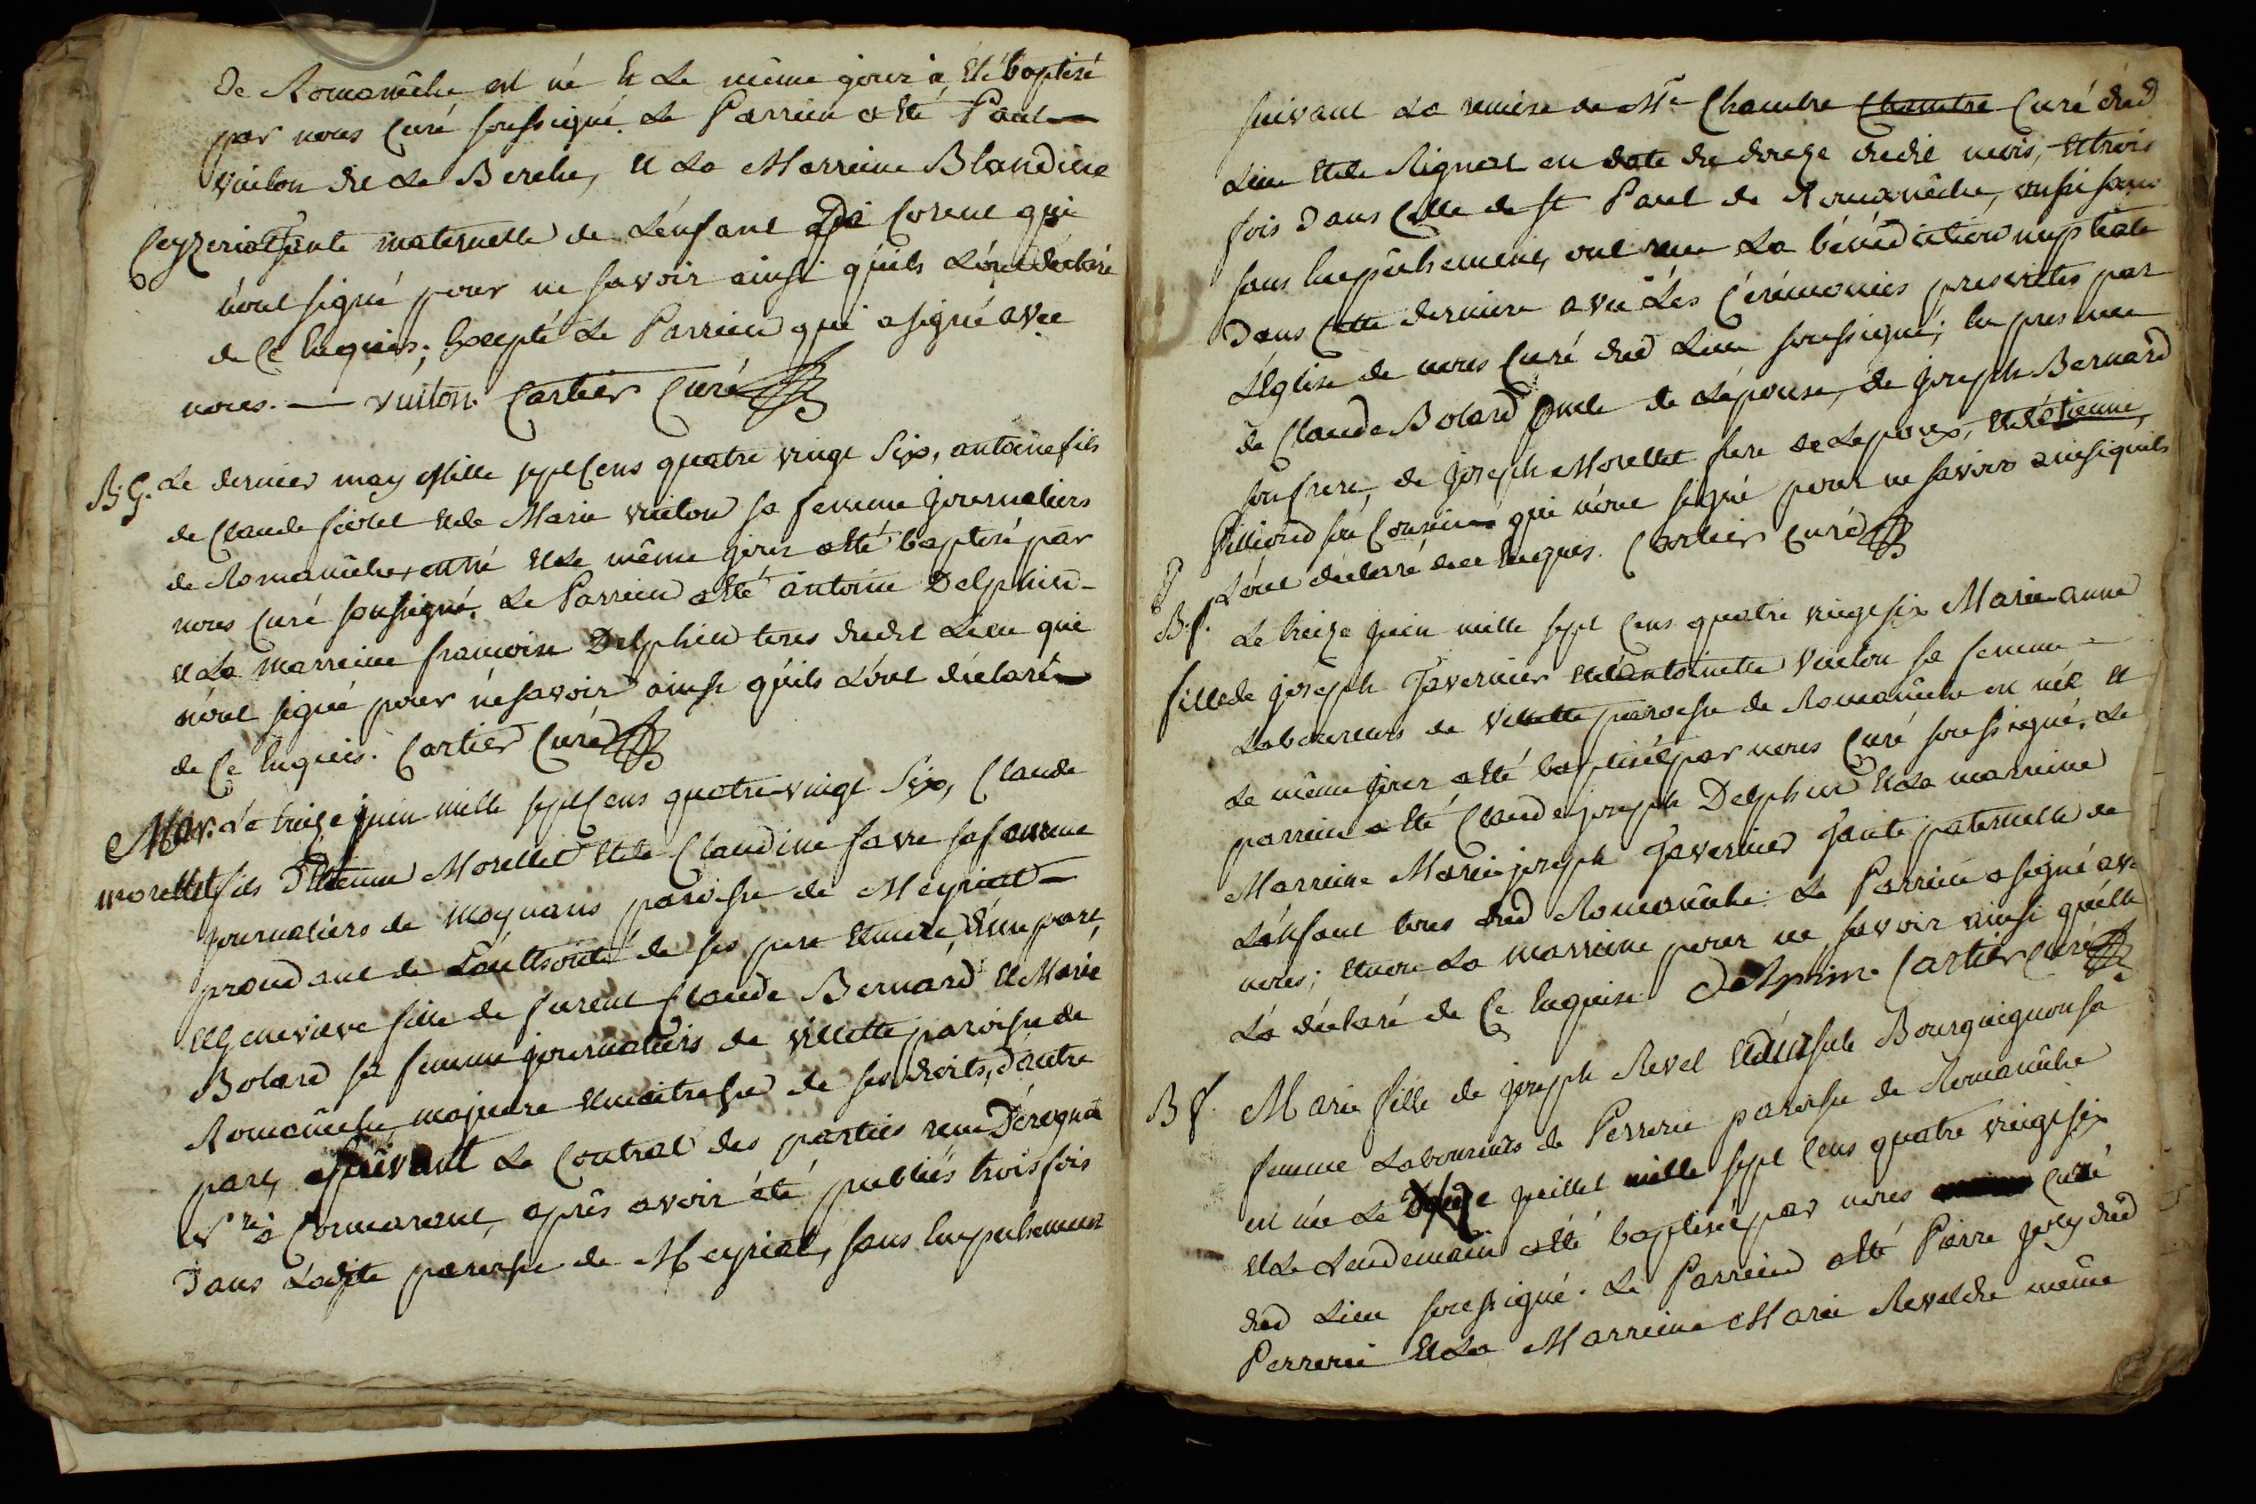 de Romanêche est né Et Le même jour a Eté baptisé
par nous Curé soussigné. Le Parrien a Eté Paul
vuiton de La Berche, Et La Marreine Blandine
Ceyzeriat tante maternelle de L'enfant De Corent qui
n'ont signé pour ne savoir ainsi qu'ils L'ont déclaré
de Ce Enquis; Excepté Le Parrien qui a signé avec
nous. vuiton Cartier Curé
B. G. Le dernier may Mille sept Cens quatre vingt Six, antoine fils
de Claude Et de Marie vuiton sa femme journaliers
de Romanêche, est né Et Le même jour a Eté baptisé par
nous Curé soussigné. Le Parrien a Eté antoine Delphin
Et La marreine francoise Delphin tous dudit Lieu qui
n'ont signé pour ne savoir ainsi qu'ils L'ont déclaré
de Ce Enquis. Cartier Curé
Mar. Le treize juin mille sept Cens quatre vingt Six, Claude
morellet fils d'Etienne Morellet Et de Claudine favre sa femme
journaliers de moynans paroisse de Meyriat
de L'authorité de ses pere Et mere, d'une part,
Et Genevieve fille de furent Claude Bernard Et Marie
Bolard sa femme journaliers de villette paroisse de
Romanêche, majeure Et maitresse de ses droits, d'autre
part, suivant Le Contrat des parties reçu
après avoir été publiés trois fois
dans Ladite paroisse de Meyriat, sans Empechement
suivant La remise de Mre Chambre Chambre Curé dud
Lieu Et de Rignat en date du douze dudit mois, Et trois
fois dans Celle de St Paul de Romanêche, aussi sans
sans Empêchement, ont reçu La bénédiction nuptiale
dans Cette derniere avec Les Cérémonies prescrites par
L'Eglise de nous Curé dud Lieu soussigné; En presence
de Claude Bolard oncle de L'épouse, de joseph Bernard
son frere, de joseph Morellet frere de L'epoux, Et d'etienne
son Cousin qui n'ont signé pour ne savoir ainsi quils
L'ont déclaré de Ce Enquis. Cartier Curé
B. f. Le treize juin mille sept Cens quatre vingt six Marie anne
fille de joseph Tavernier Et d'antoinette Vuiton sa femme
Laboureurs de Villette paroisse de Romanêche est née Et
Le même jour a Eté baptisée par nous Curé soussigné. Le
parrien a Eté Claude joseph Delphin Et La marreine
Marreine Marie joseph Tavernier Tante paternelle de
L'enfant tous dud Romanêche. Le Parrien a signé avec
nous; Et non La marreine pour ne savoir ainsi qu'elle
L'a déclaré de Ce Enquise. Delphin Cartier Curé
B f. Marie fille de joseph Revel Et d'ursule Bourguignon sa
femme Laboureurs de Perrerie paroisse de Romanêche
est née Le juillet mille sept Cens quatre vingt six
Et Le Lendemain a Eté baptisée par nous Curé
dud Lieu soussigné. Le Parrien a Eté Pierre joly dud
Perrerie Et La Marreine Marie Revel du même